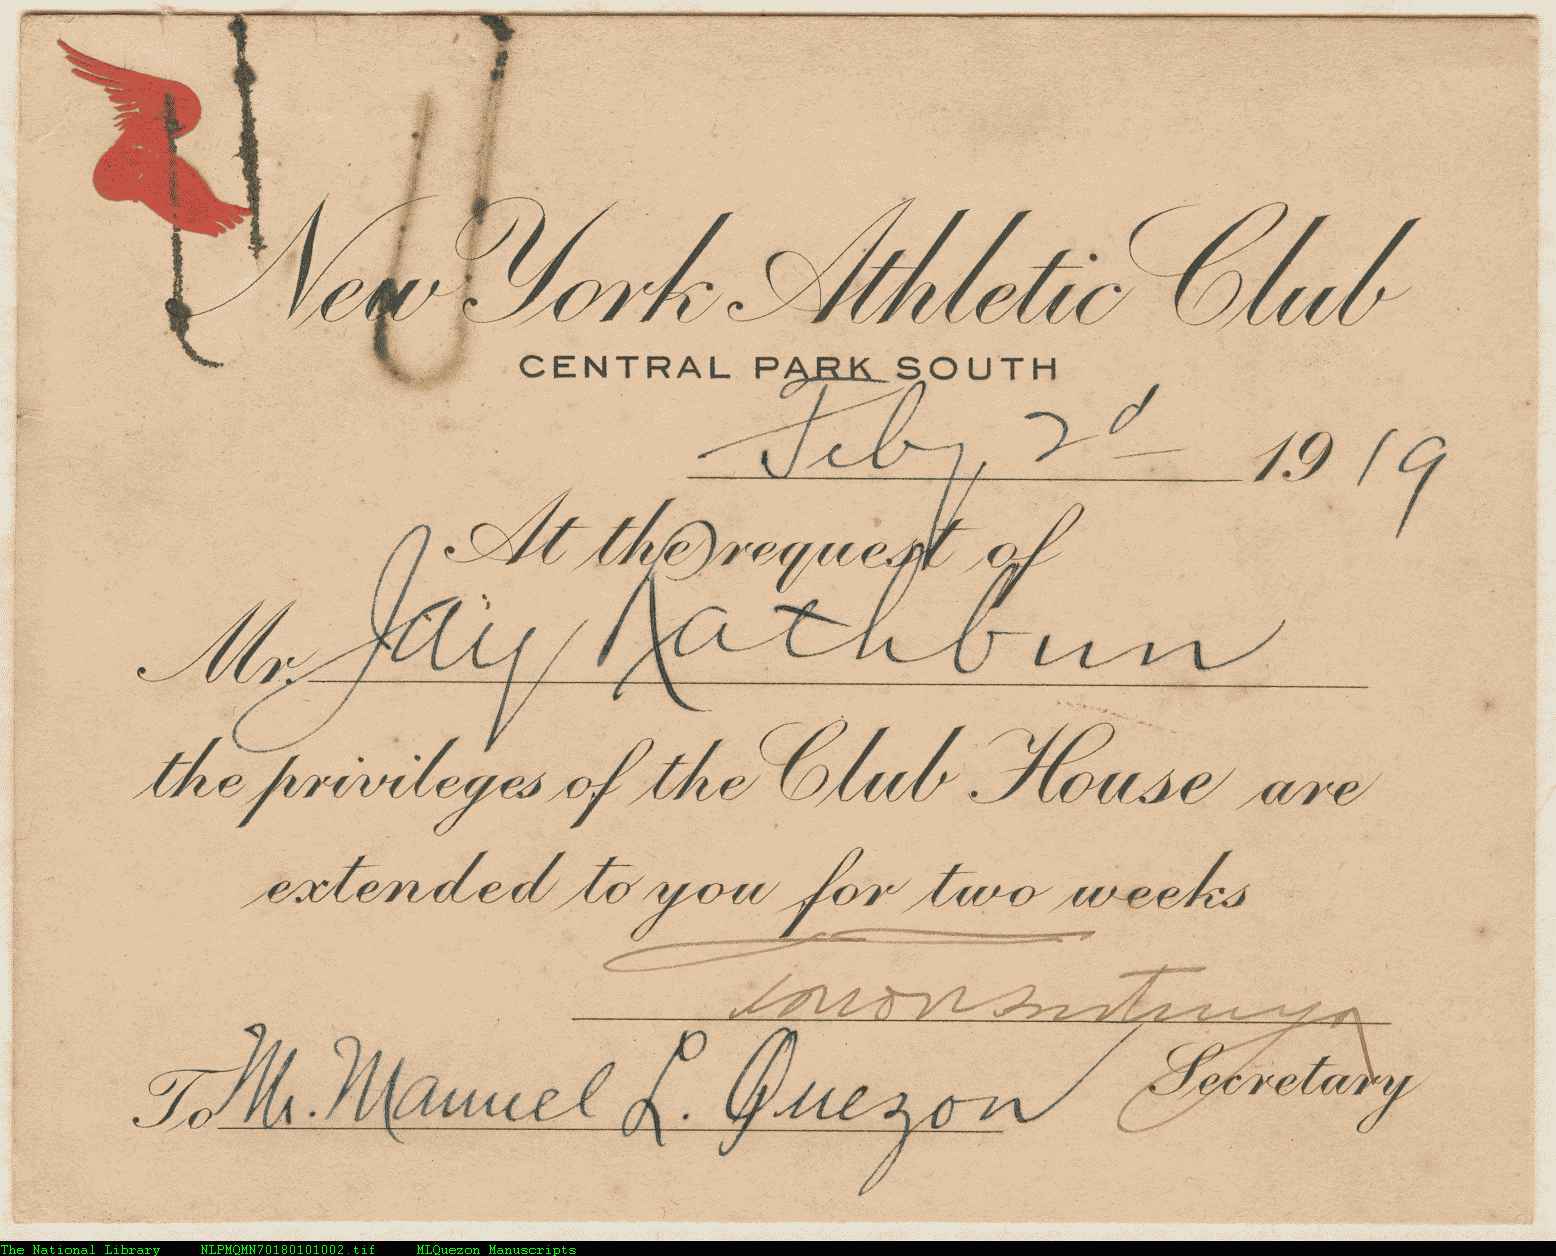 New York Athletic Club
CENTRAL PARK SOUTH
Feby 2d 1919
At the request of
Mr. Jay Rathbun
the privileges of the Club House are
extended to you for two weeks
Secretary
To Mr. Manuel L. Quezon
The National Library NLPMQMN70180101002.tif MLQuezon Manuscripts